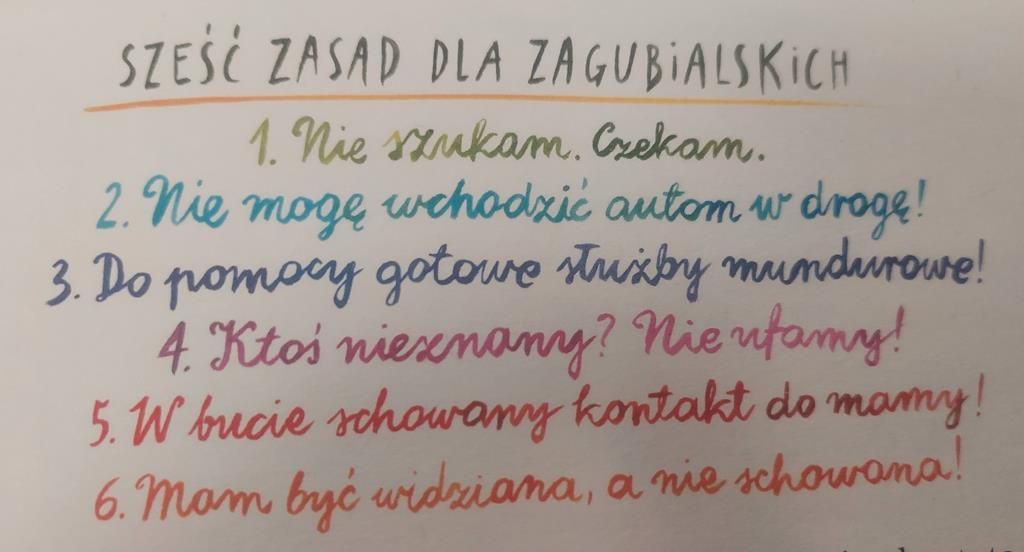 SZEŚĆ ZASAD DLA ZAGUBiALSKiCH
1. Nie szukam. Czekam.
2. Nie mogę wchodzić autom w drogę!
3. Do pomocy gotowe służby mundurowe!
4. Ktoś nieznany? Nie ufamy!
5. W bucie schowany kontakt do mamy!
6. Mam być widziana, a nie schowana!